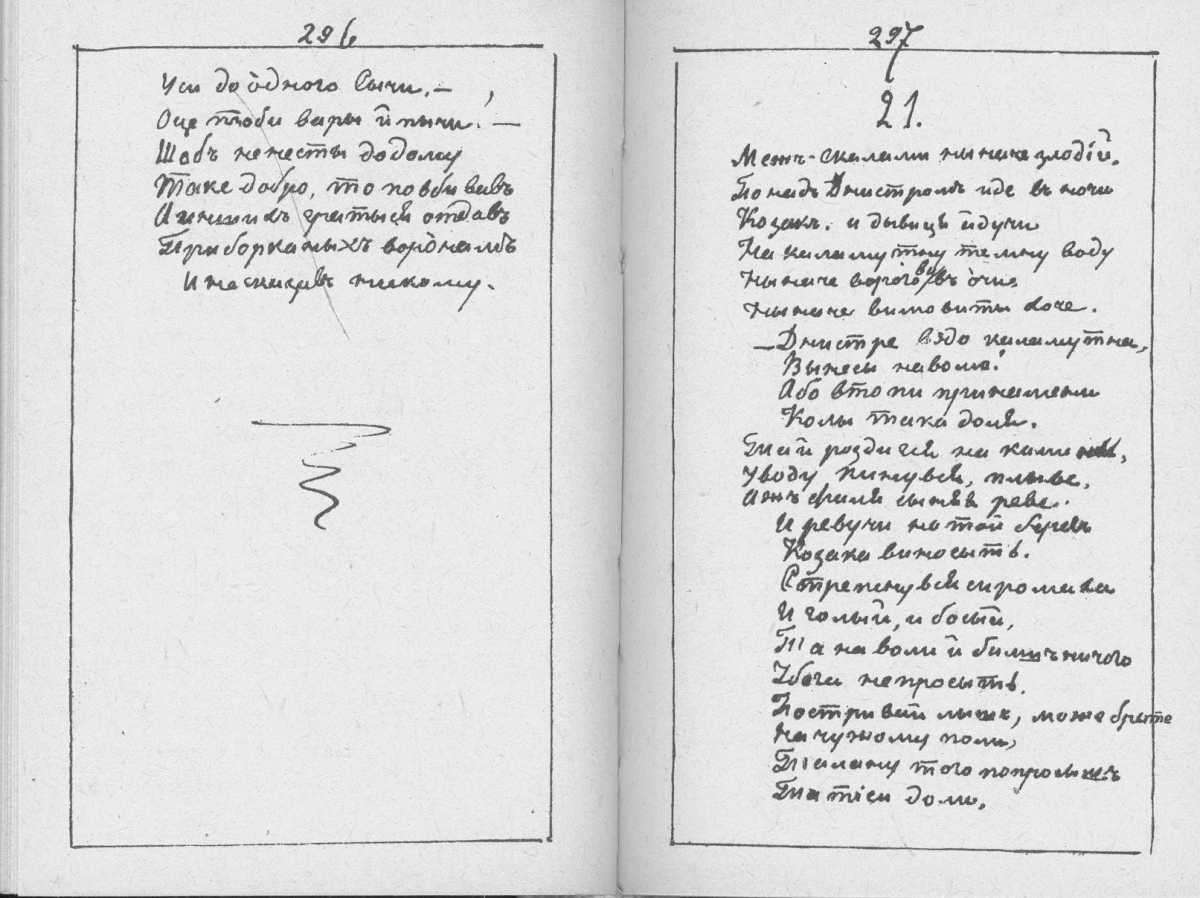 296
Уси до одного Сычи. —
Оце ттоби вары й пычи! —
Щобъ не нести до дому
Таке добро, то повбывавъ
А иншихъ гратыся отдавъ
Приборканыхъ воронамъ
И не сказавъ никому.
297
21.
Межъ-скалами ныначе злодій,
Понадъ Днистромъ иде въ ночи
Козакъ. и дывицъ йдучи
На каламутну темну воду
Ныначе ворогови въ очи.
Ныначе вимовиты хоче.
— Днистре, водо каламутна,
Вынесы на волю!
Або втопи принаймени
Колы така доля.
Тай роздигся на камени,
У воду кинувся, плыве,
Ажъ филя сыняя реве.
И ревучи на той берегъ
Козака виносыть.
Стрепенувся сиромаха
И голый, и босый,
Та на воли и билшъ ничого
У бога не просыть.
Постривай лышъ, може брате
На чужому поли,
Талану того попросышъ
Та тієи доли.